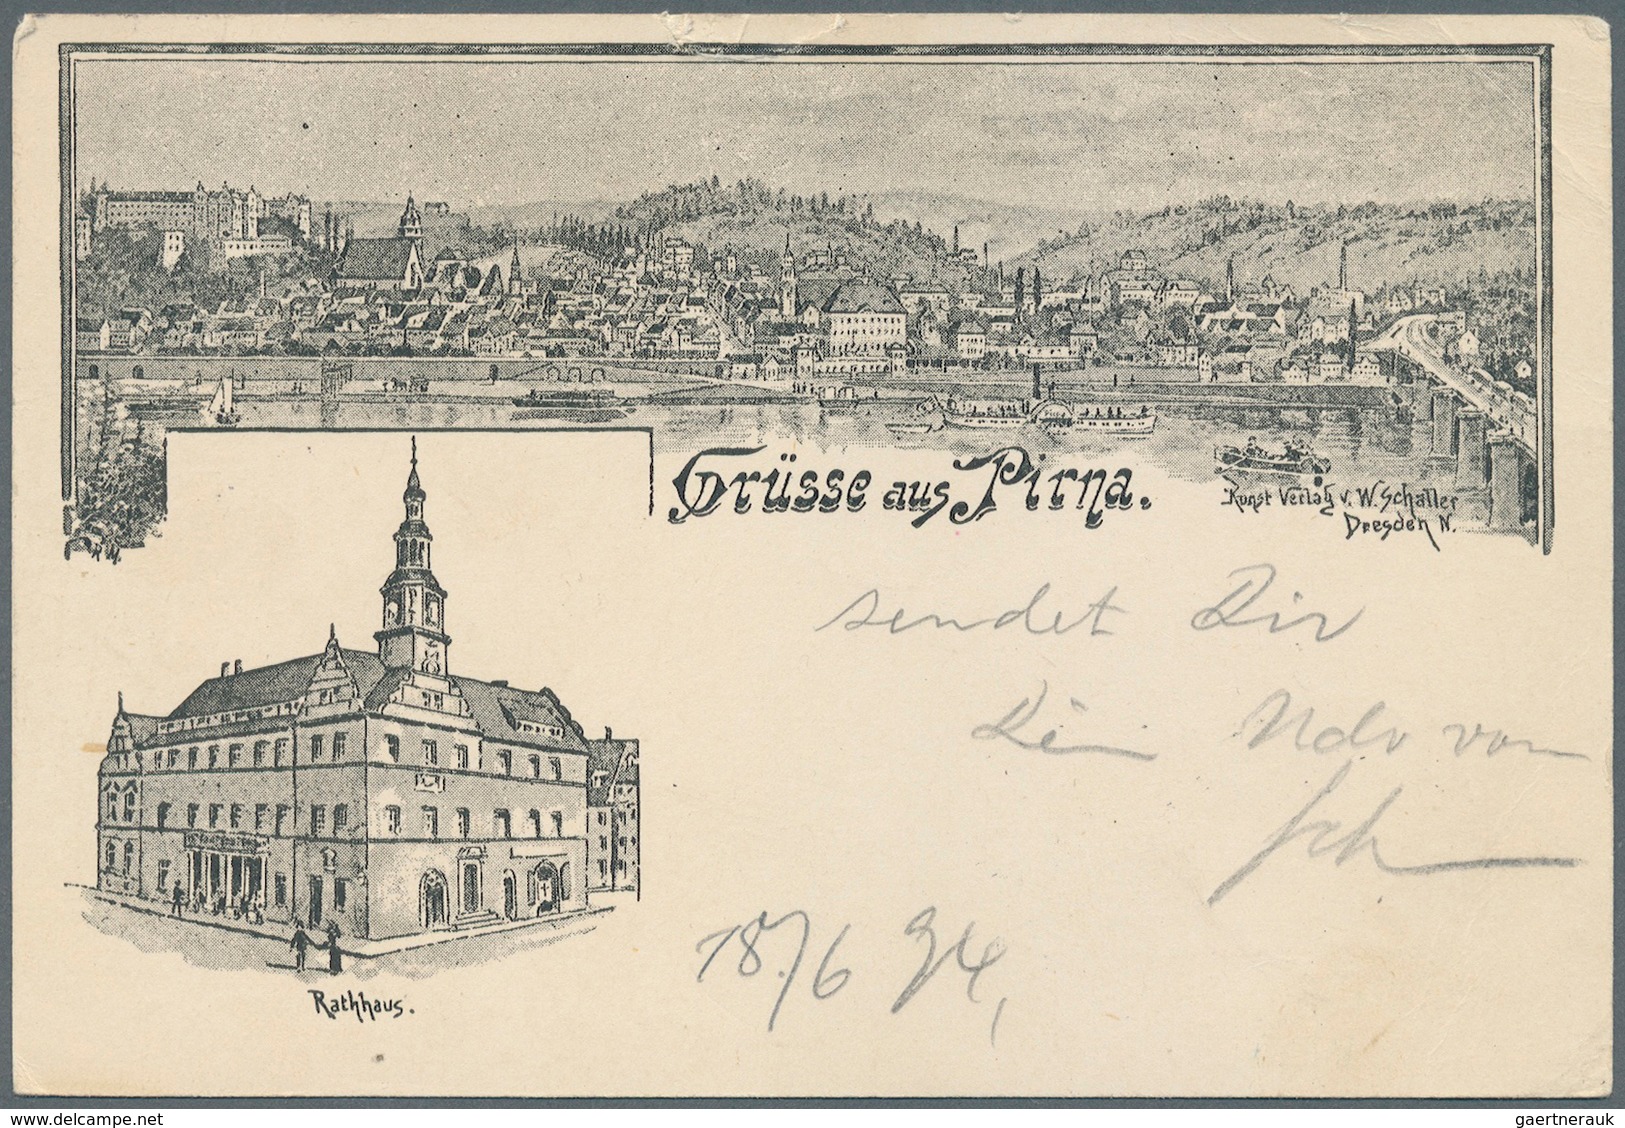 Grüsse aus Pirna.
Kunst Verlag v. W. Schaller
Dresden N.
R M.
sendet Dir
Dein von
Sch
18/6 94,
Rathhaus.
delcampe.net
gaertnerauk